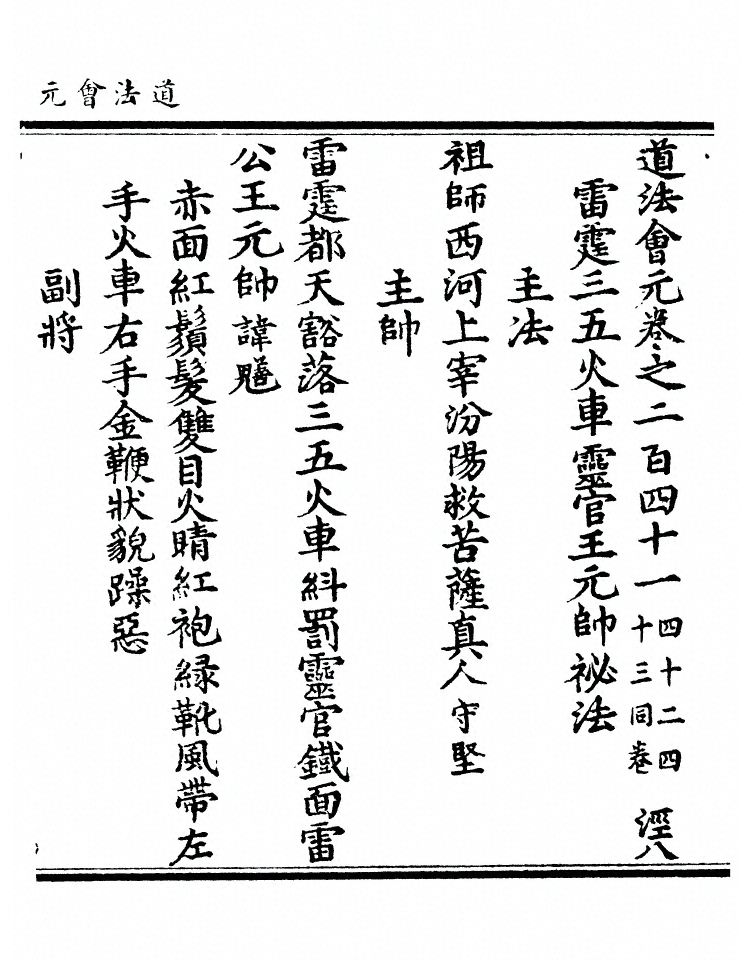 道法會元
道法會元卷之二百四十一 四十二四十三同卷 涇八
雷霆三五火車靈官王元帥祕法
主法
祖師西河上宰汾陽救苦薩真人守堅
主帥
雷霆都天豁落三五火車糾罰靈官鐵面雷
公王元帥諱
赤面紅鬚髮雙目火睛紅袍綠靴風帶左
手火車右手金鞭狀貌躁惡
副將